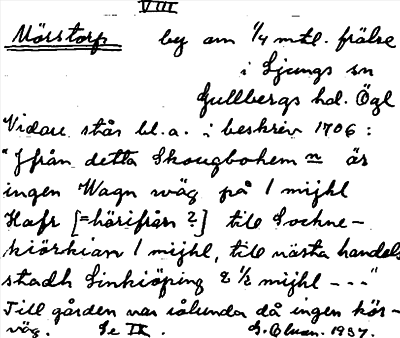 VIII
Mörstorp by om 1/4 mtl. frälse
i Ljungs sn
Gullbergs hd. Ögl
Vidare står bl.a. i beskriv 1706:
"Ifrån detta Skougbohem n är
ingen Wagn wäg på 1 mijhl
Hafr [=härifrån?] till Sockne-
kiörkian 1 mijhl, till nästa handels
stadh Linkiöping 2 1/2 mijhl - - -"
Till gården var sålunda då ingen kör-
väg. Se IX. 1937.